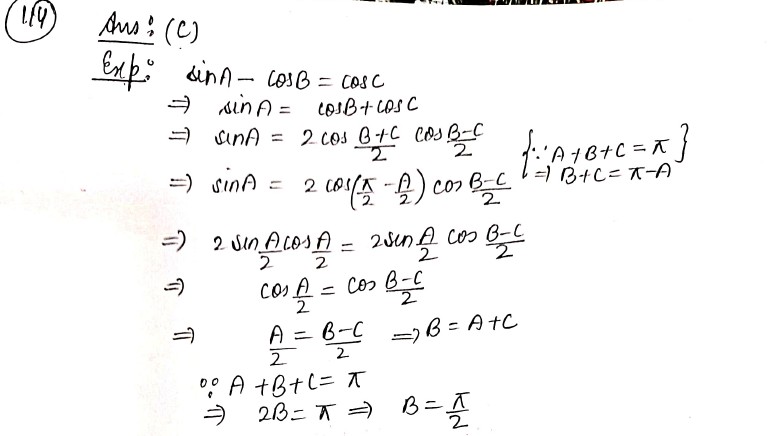 114
Ans: (C)
Exp: sinA - cosB = cosC
⇒ sinA = cosB + cosC
⇒ sinA = 2 cos (B+C)/2 cos (B-C)/2
⇒ sinA = 2 cos(π/2 - A/2) cos (B-C)/2 {∵ A+B+C = π
⇒ B+C = π-A}
⇒ 2 sin A/2 cos A/2 = 2 sin A/2 cos (B-C)/2
⇒ cos A/2 = cos (B-C)/2
⇒ A/2 = (B-C)/2 ⇒ B = A+C
∵ A+B+C = π
⇒ 2B = π ⇒ B = π/2